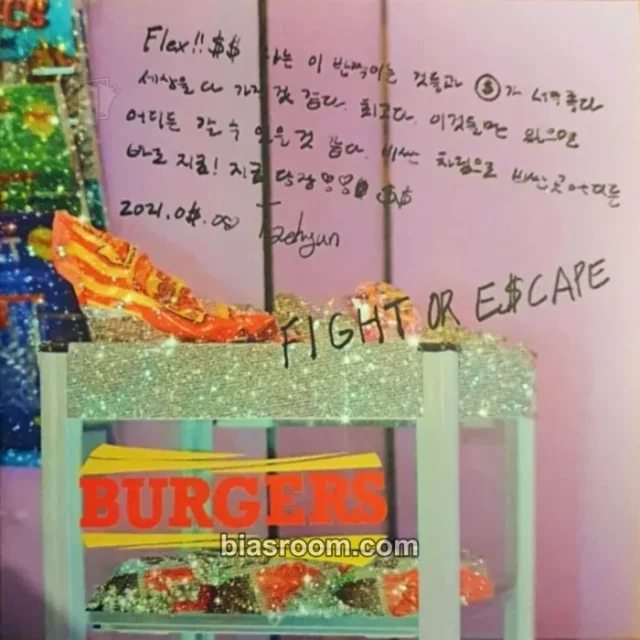 Flex!! $$ 나는 이 반짝이는 것들과 $가 너무 좋다
세상을 다 가진 것 같다. 최고다. 이것들만 있으면
어디든 갈 수 있을 것 같다. 비싼 차림으로 비싼 곳 어디든
바로 지금! 지금 당장 $$
2021.08.08 Taehyun
FIGHT OR E$CAPE
BURGERS
biasroom.com